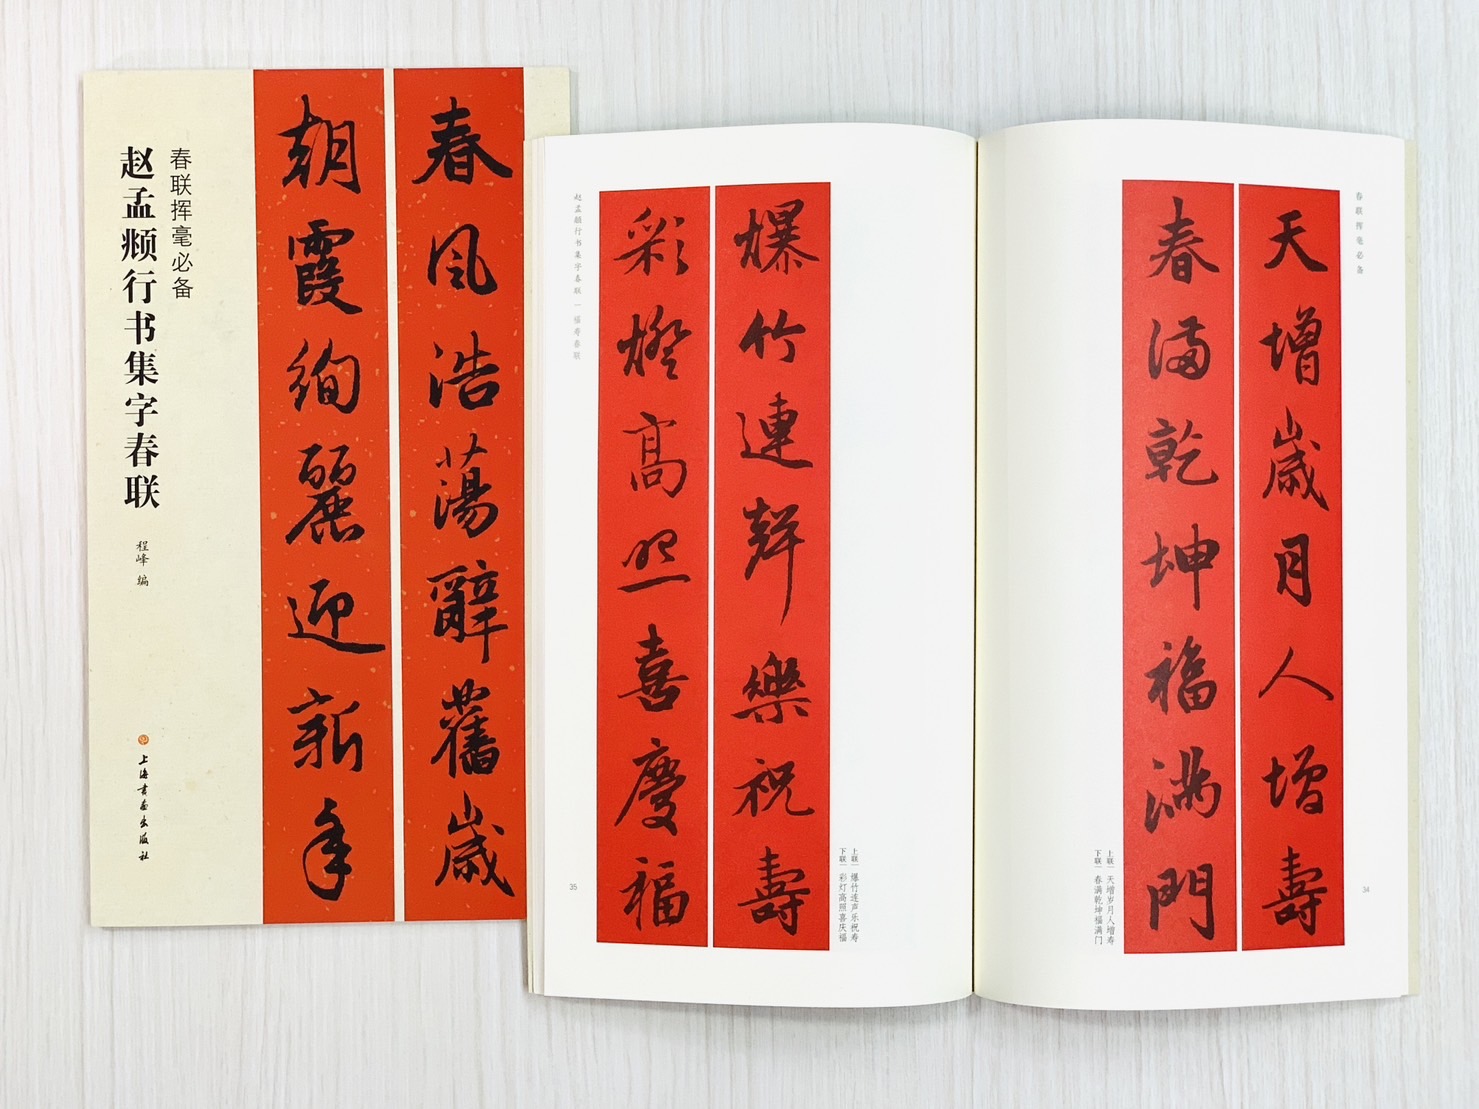 春联挥毫必备
赵孟頫行书集字春联
程峰 编
上海书画出版社
春風浩蕩辭舊歲
朝霞絢麗迎新年
春联挥毫必备
天增歲月人增壽
春滿乾坤福滿門
上联｜天增岁月人增寿
下联｜春满乾坤福满门
34
爆竹連聲樂祝壽
彩燈高照喜慶福
上联｜爆竹连声乐祝寿
下联｜彩灯高照喜庆福
赵孟頫行书集字春联｜福寿春联
35